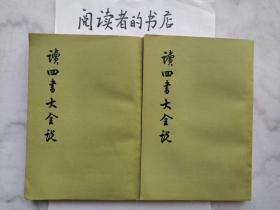 阅读者的书店
讀四書大全説
讀四書大全説